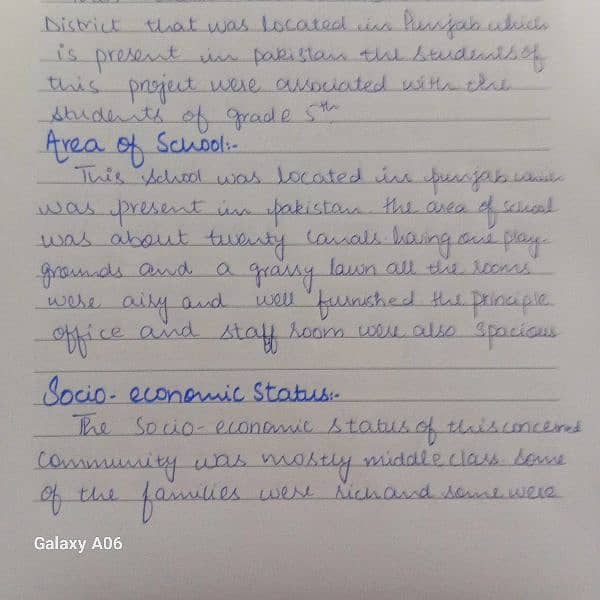 District that was located in Punjab which
is present in pakistan the students of
this project were associated with the
students of grade 5th
Area of School:-
This school was located in punjab
was present in pakistan. the area of school
was about twenty canals having one play-
grounds and a grassy lawn all the rooms
were airy and well furnished the principle
office and staff room were also spacious
Socio-economic Status:-
The Socio-economic status of this concerned
community was mostly middle class. Some
of the families were rich and some were
Galaxy A06